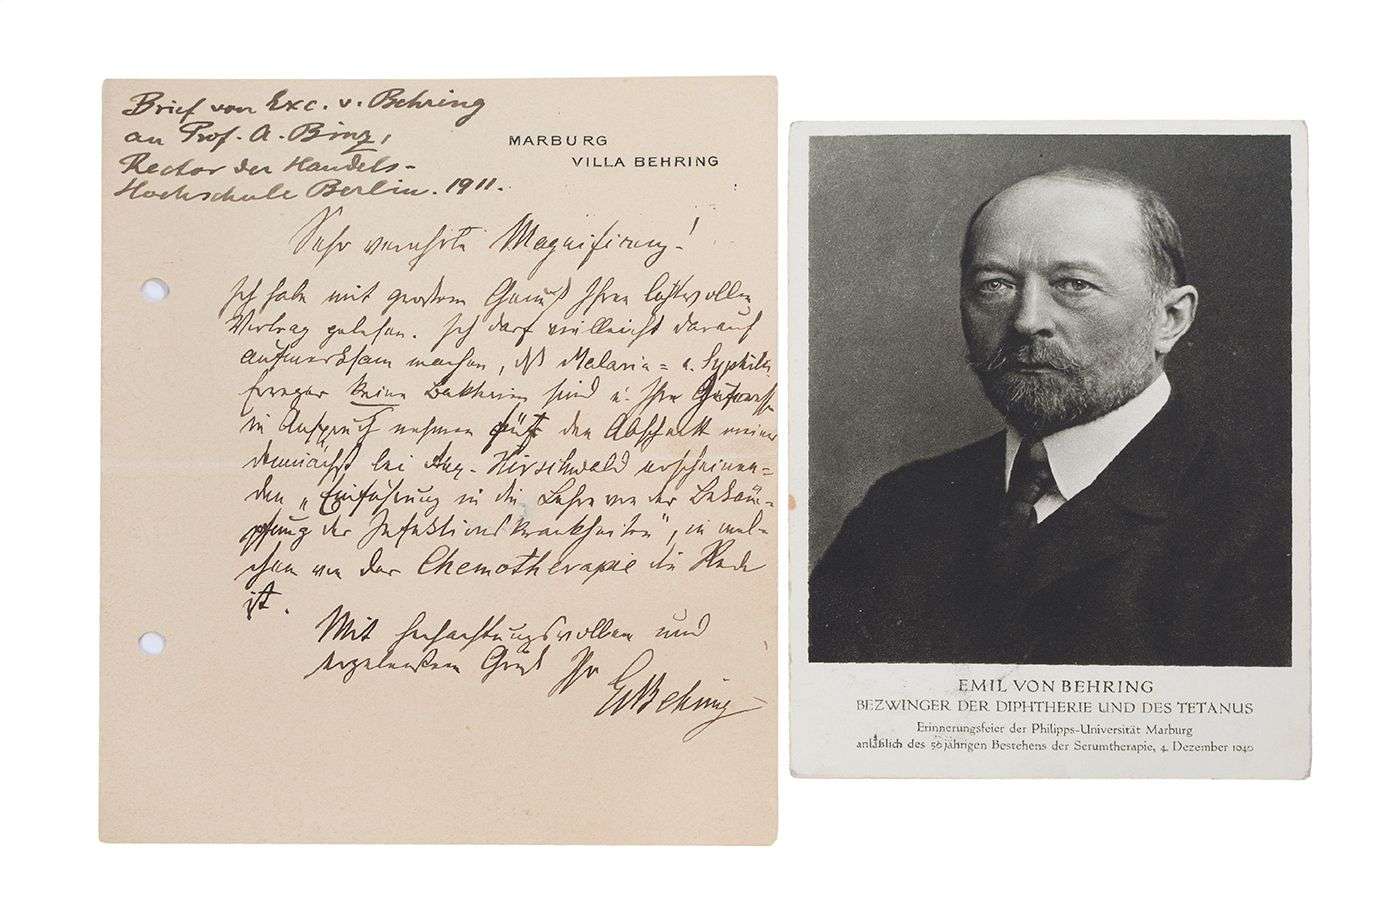 Brief von Exc. v. Behring
an Prof. A. Binz,
Rector der Handels-
Hochschule Berlin. 1911.
MARBURG
VILLA BEHRING
Sehr verehrte Magnifizenz!
Ich habe mit großem Genuß Ihren lichtvollen
Vortrag gelesen. Ich darf vielleicht darauf
aufmerksam machen, dß Malaria= u. Syphilis
erreger keine Bakterien sind u. Ihr
in Anspruch nehmen für den Abschnitt meiner
demnächst bei Aug. Hirschwald erscheinen=
den „Einführung in die Lehre von der Bekäm=
pfung der Infektionskrankheiten", in wel=
chem von der Chemotherapie die Rede
ist.
Mit hochachtungsvollem und
ergebenstem Gruß Ihr
EvBehring
EMIL VON BEHRING
BEZWINGER DER DIPHTHERIE UND DES TETANUS
Erinnerungsfeier der Philipps-Universität Marburg
anläßlich des 50jährigen Bestehens der Serumtherapie, 4. Dezember 1940